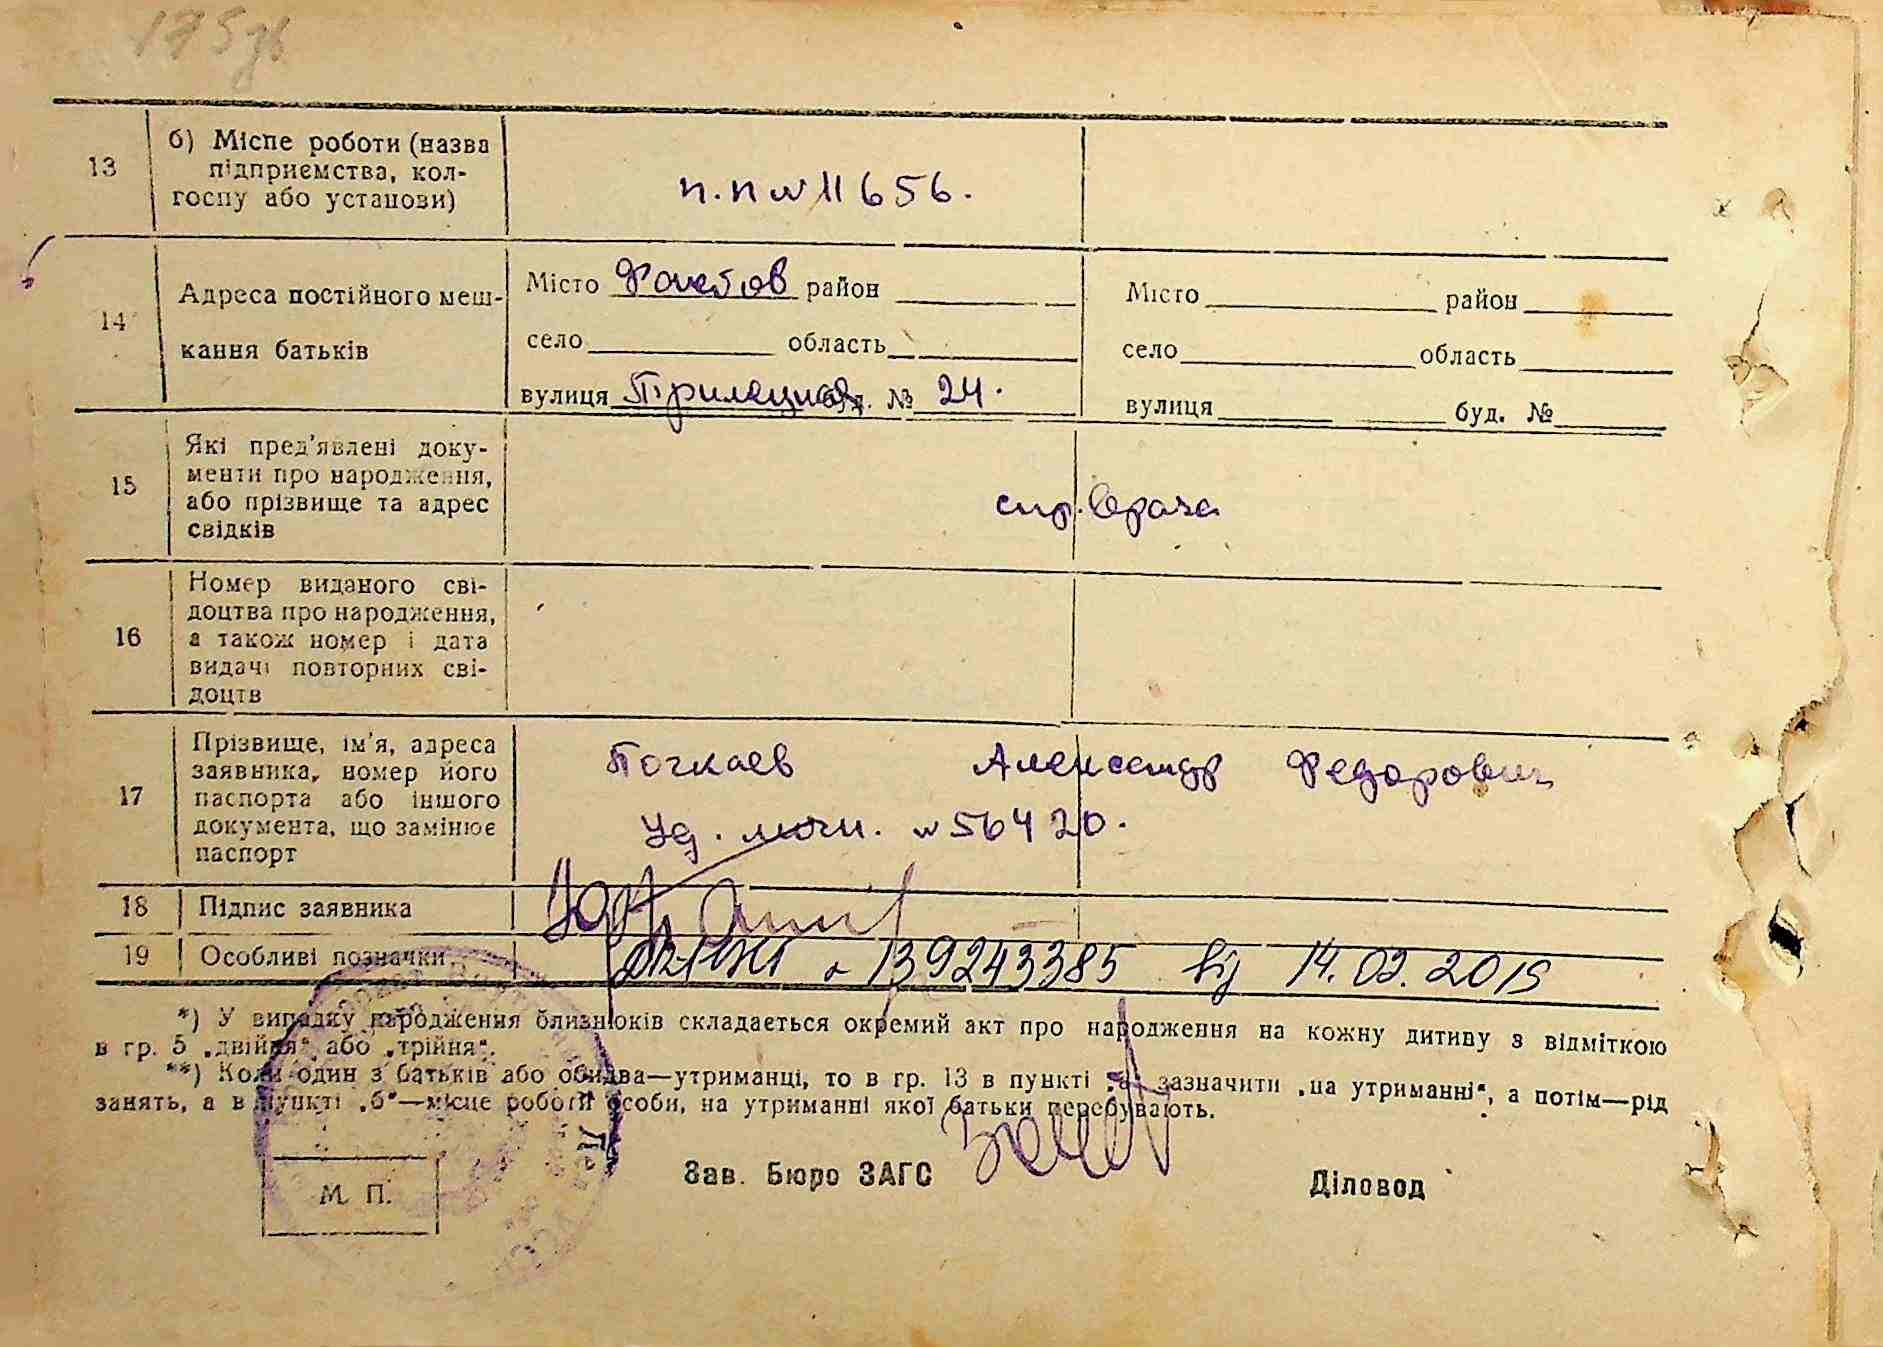 175зв
13
б) Місце роботи (назва
підприємства, кол-
госпу або установи)
п.п № 11656.
14
Адреса постійного меш-
кання батьків
Місто район
село область
вулиця буд. № 24.
Місто район
село область
вулиця буд. №
15
Які пред'явлені доку-
менти про народження,
або прізвище та адрес
свідків
спр. врача
16
Номер виданого сві-
доцтва про народження,
а також номер і дата
видачі повторних сві-
доцтв
17
Прізвище, ім'я, адреса
заявника, номер його
паспорта або іншого
документа, що замінює
паспорт
Почкаев Александр Федорович
Уд. личн. № 56420.
18
Підпис заявника
19
Особливі позначки
139243385 від 14.02.2015
*) У випадку народження близнюків складається окремий акт про народження на кожну дитину з відміткою
в гр. 5 „двійня“ або „трійня“.
**) Коли один з батьків або обидва—утриманці, то в гр. 13 в пункті „а“ зазначити „на утриманні“, а потім—рід
занять, а в пункті „б“—місце роботи особи, на утриманні якої батьки перебувають.
М. П.
Зав. Бюро ЗАГС
Діловод